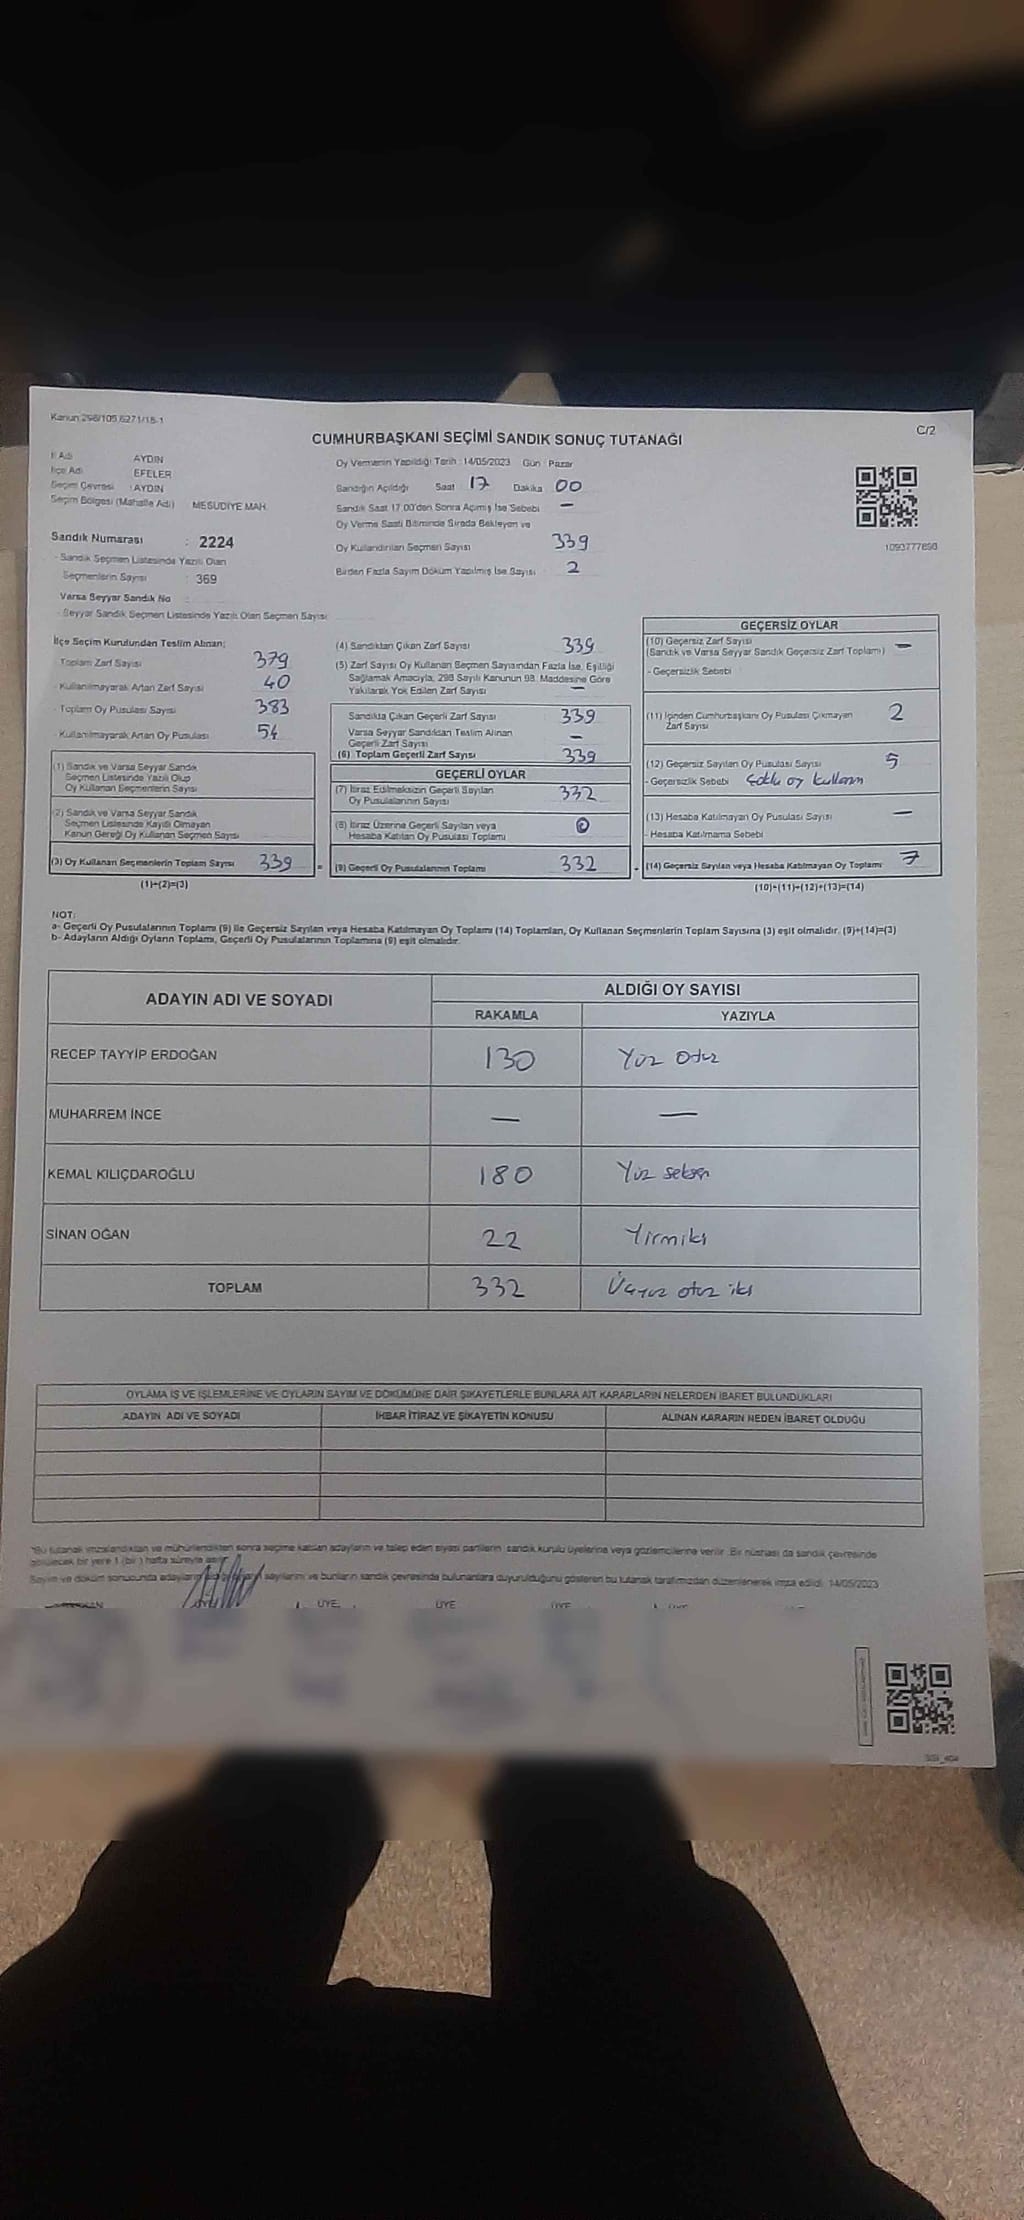 Kanun 298/105,6271/18-1
C/2
CUMHURBAŞKANI SEÇİMİ SANDIK SONUÇ TUTANAĞI
İl Adı AYDIN
İlçe Adı EFELER
Seçim Çevresi : AYDIN
Seçim Bölgesi (Mahalle Adı) MESUDİYE MAH.
Sandık Numarası : 2224
- Sandık Seçmen Listesinde Yazılı Olan
Seçmenlerin Sayısı : 369
Varsa Seyyar Sandık No
- Seyyar Sandık Seçmen Listesinde Yazılı Olan Seçmen Sayısı
Oy Vermenin Yapıldığı Tarih : 14/05/2023 Gün : Pazar
Sandığın Açıldığı Saat 17 Dakika 00
Sandık Saat 17:00'den Sonra Açılmış İse Sebebi —
Oy Verme Saati Bitiminde Sırada Bekleyen ve
Oy Kullandırılan Seçmen Sayısı 339
Birden Fazla Sayım Döküm Yapılmış İse Sayısı 2
1093777898
İlçe Seçim Kurulundan Teslim Alınan;
Toplam Zarf Sayısı 379
- Kullanılmayarak Artan Zarf Sayısı 40
- Toplam Oy Pusulası Sayısı 383
- Kullanılmayarak Artan Oy Pusulası 54
(1) Sandık ve Varsa Seyyar Sandık
Seçmen Listesinde Yazılı Olup
Oy Kullanan Seçmenlerin Sayısı
(2) Sandık ve Varsa Seyyar Sandık
Seçmen Listesinde Kayıtlı Olmayan
Kanun Gereği Oy Kullanan Seçmen Sayısı
(3) Oy Kullanan Seçmenlerin Toplam Sayısı 339
(1)+(2)=(3)
(4) Sandıktan Çıkan Zarf Sayısı 339
(5) Zarf Sayısı Oy Kullanan Seçmen Sayısından Fazla İse, Eşitliği
Sağlamak Amacıyla, 298 Sayılı Kanunun 98. Maddesine Göre
Yakılarak Yok Edilen Zarf Sayısı —
Sandıkta Çıkan Geçerli Zarf Sayısı 339
Varsa Seyyar Sandıktan Teslim Alınan
Geçerli Zarf Sayısı —
(6) Toplam Geçerli Zarf Sayısı 339
GEÇERLİ OYLAR
(7) İtiraz Edilmeksizin Geçerli Sayılan
Oy Pusulalarının Sayısı 332
(8) İtiraz Üzerine Geçerli Sayılan veya
Hesaba Katılan Oy Pusulası Toplamı 0
(9) Geçerli Oy Pusulalarının Toplamı 332
GEÇERSİZ OYLAR
(10) Geçersiz Zarf Sayısı
(Sandık ve Varsa Seyyar Sandık Geçersiz Zarf Toplamı) —
- Geçersizlik Sebebi
(11) İçinden Cumhurbaşkanı Oy Pusulası Çıkmayan
Zarf Sayısı 2
(12) Geçersiz Sayılan Oy Pusulası Sayısı 5
- Geçersizlik Sebebi Çoklu oy kullanım
(13) Hesaba Katılmayan Oy Pusulası Sayısı —
- Hesaba Katılmama Sebebi
(14) Geçersiz Sayılan veya Hesaba Katılmayan Oy Toplamı 7
(10)+(11)+(12)+(13)=(14)
NOT:
a- Geçerli Oy Pusulalarının Toplamı (9) ile Geçersiz Sayılan veya Hesaba Katılmayan Oy Toplamı (14) Toplamları, Oy Kullanan Seçmenlerin Toplam Sayısına (3) eşit olmalıdır. (9)+(14)=(3)
b- Adayların Aldığı Oyların Toplamı, Geçerli Oy Pusulalarının Toplamına (9) eşit olmalıdır.
ADAYIN ADI VE SOYADI
ALDIĞI OY SAYISI
RAKAMLA YAZIYLA
RECEP TAYYİP ERDOĞAN 130 Yüz otuz
MUHARREM İNCE — —
KEMAL KILIÇDAROĞLU 180 Yüz seksen
SİNAN OĞAN 22 Yirmiki
TOPLAM 332 Üçyüz otuz iki
OYLAMA İŞ VE İŞLEMLERİNE VE OYLARIN SAYIM VE DÖKÜMÜNE DAİR ŞİKAYETLERLE BUNLARA AİT KARARLARIN NELERDEN İBARET BULUNDUKLARI
ADAYIN ADI VE SOYADI İHBAR İTİRAZ VE ŞİKAYETİN KONUSU ALINAN KARARIN NEDEN İBARET OLDUĞU
"Bu tutanak imzalandıktan ve mühürlendikten sonra seçime katılan adayların ve talep eden siyasi partilerin sandık kurulu üyelerine veya gözlemcilerine verilir. Bir nüshası da sandık çevresinde
görülecek bir yere 1 (bir) hafta süreyle asılır.
Sayım ve döküm sonucunda adayların oy sayılarını ve bunların sandık çevresinde bulunanlara duyurulduğunu gösteren bu tutanak tarafımızdan düzenlenerek imza edildi. 14/05/2023
ÜYE ÜYE ÜYE ÜYE